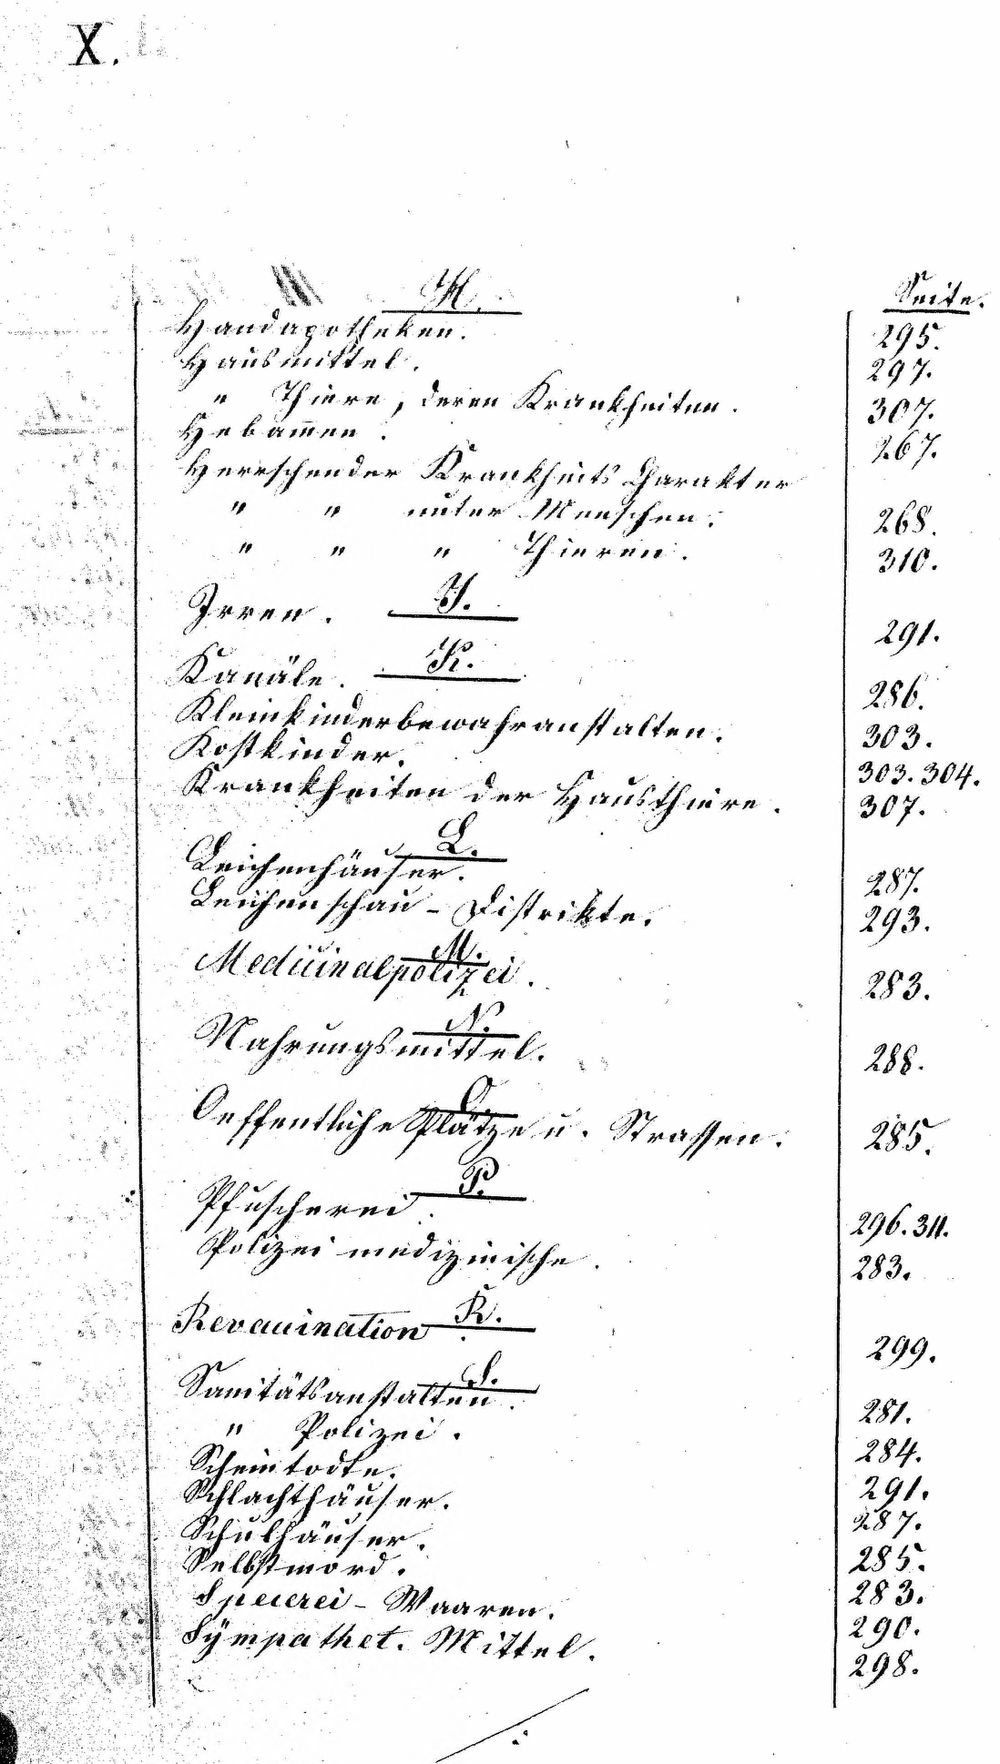 X.
H. Seite.
Handapotheken. 295.
Hausmittel. 297.
" Thiere, deren Krankheiten. 307.
Hebam̄en. 267.
Herrschender Krankheits Charakter
" " unter Menschen. 268.
" " " Thieren. 310.
I.
Irren. 291.
K.
Kanäle. 286.
Kleinkinderbewahranstalten. 303.
Kostkinder. 303. 304.
Krankheiten der Hausthiere. 307.
L.
Leichenhäuser. 287.
Leichenschau - Distrikte. 293.
M.
Medicinalpolizei. 283.
N.
Nahrungsmittel. 288.
O.
Oeffentliche Plätze u. Strassen. 285.
P.
Pfuscherei. 296. 311.
Polizei medizinische. 283.
R.
Revaccination 299.
S.
Sanitätsanstalten. 281.
" Polizei. 284.
Scheintodte. 291.
Schlachthäuser. 287.
Schulhäuser. 285.
Selbstmord. 283.
Specerei - Waaren. 290.
Sympathet. Mittel. 298.